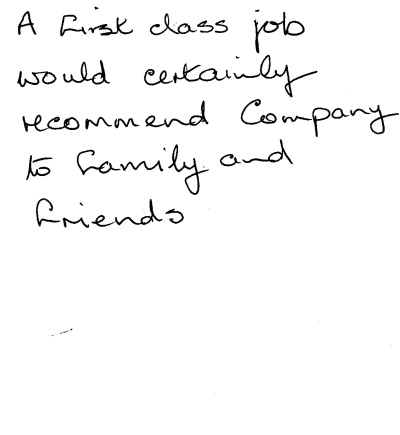 A first class job
would certainly
recommend Company
to family and
friends